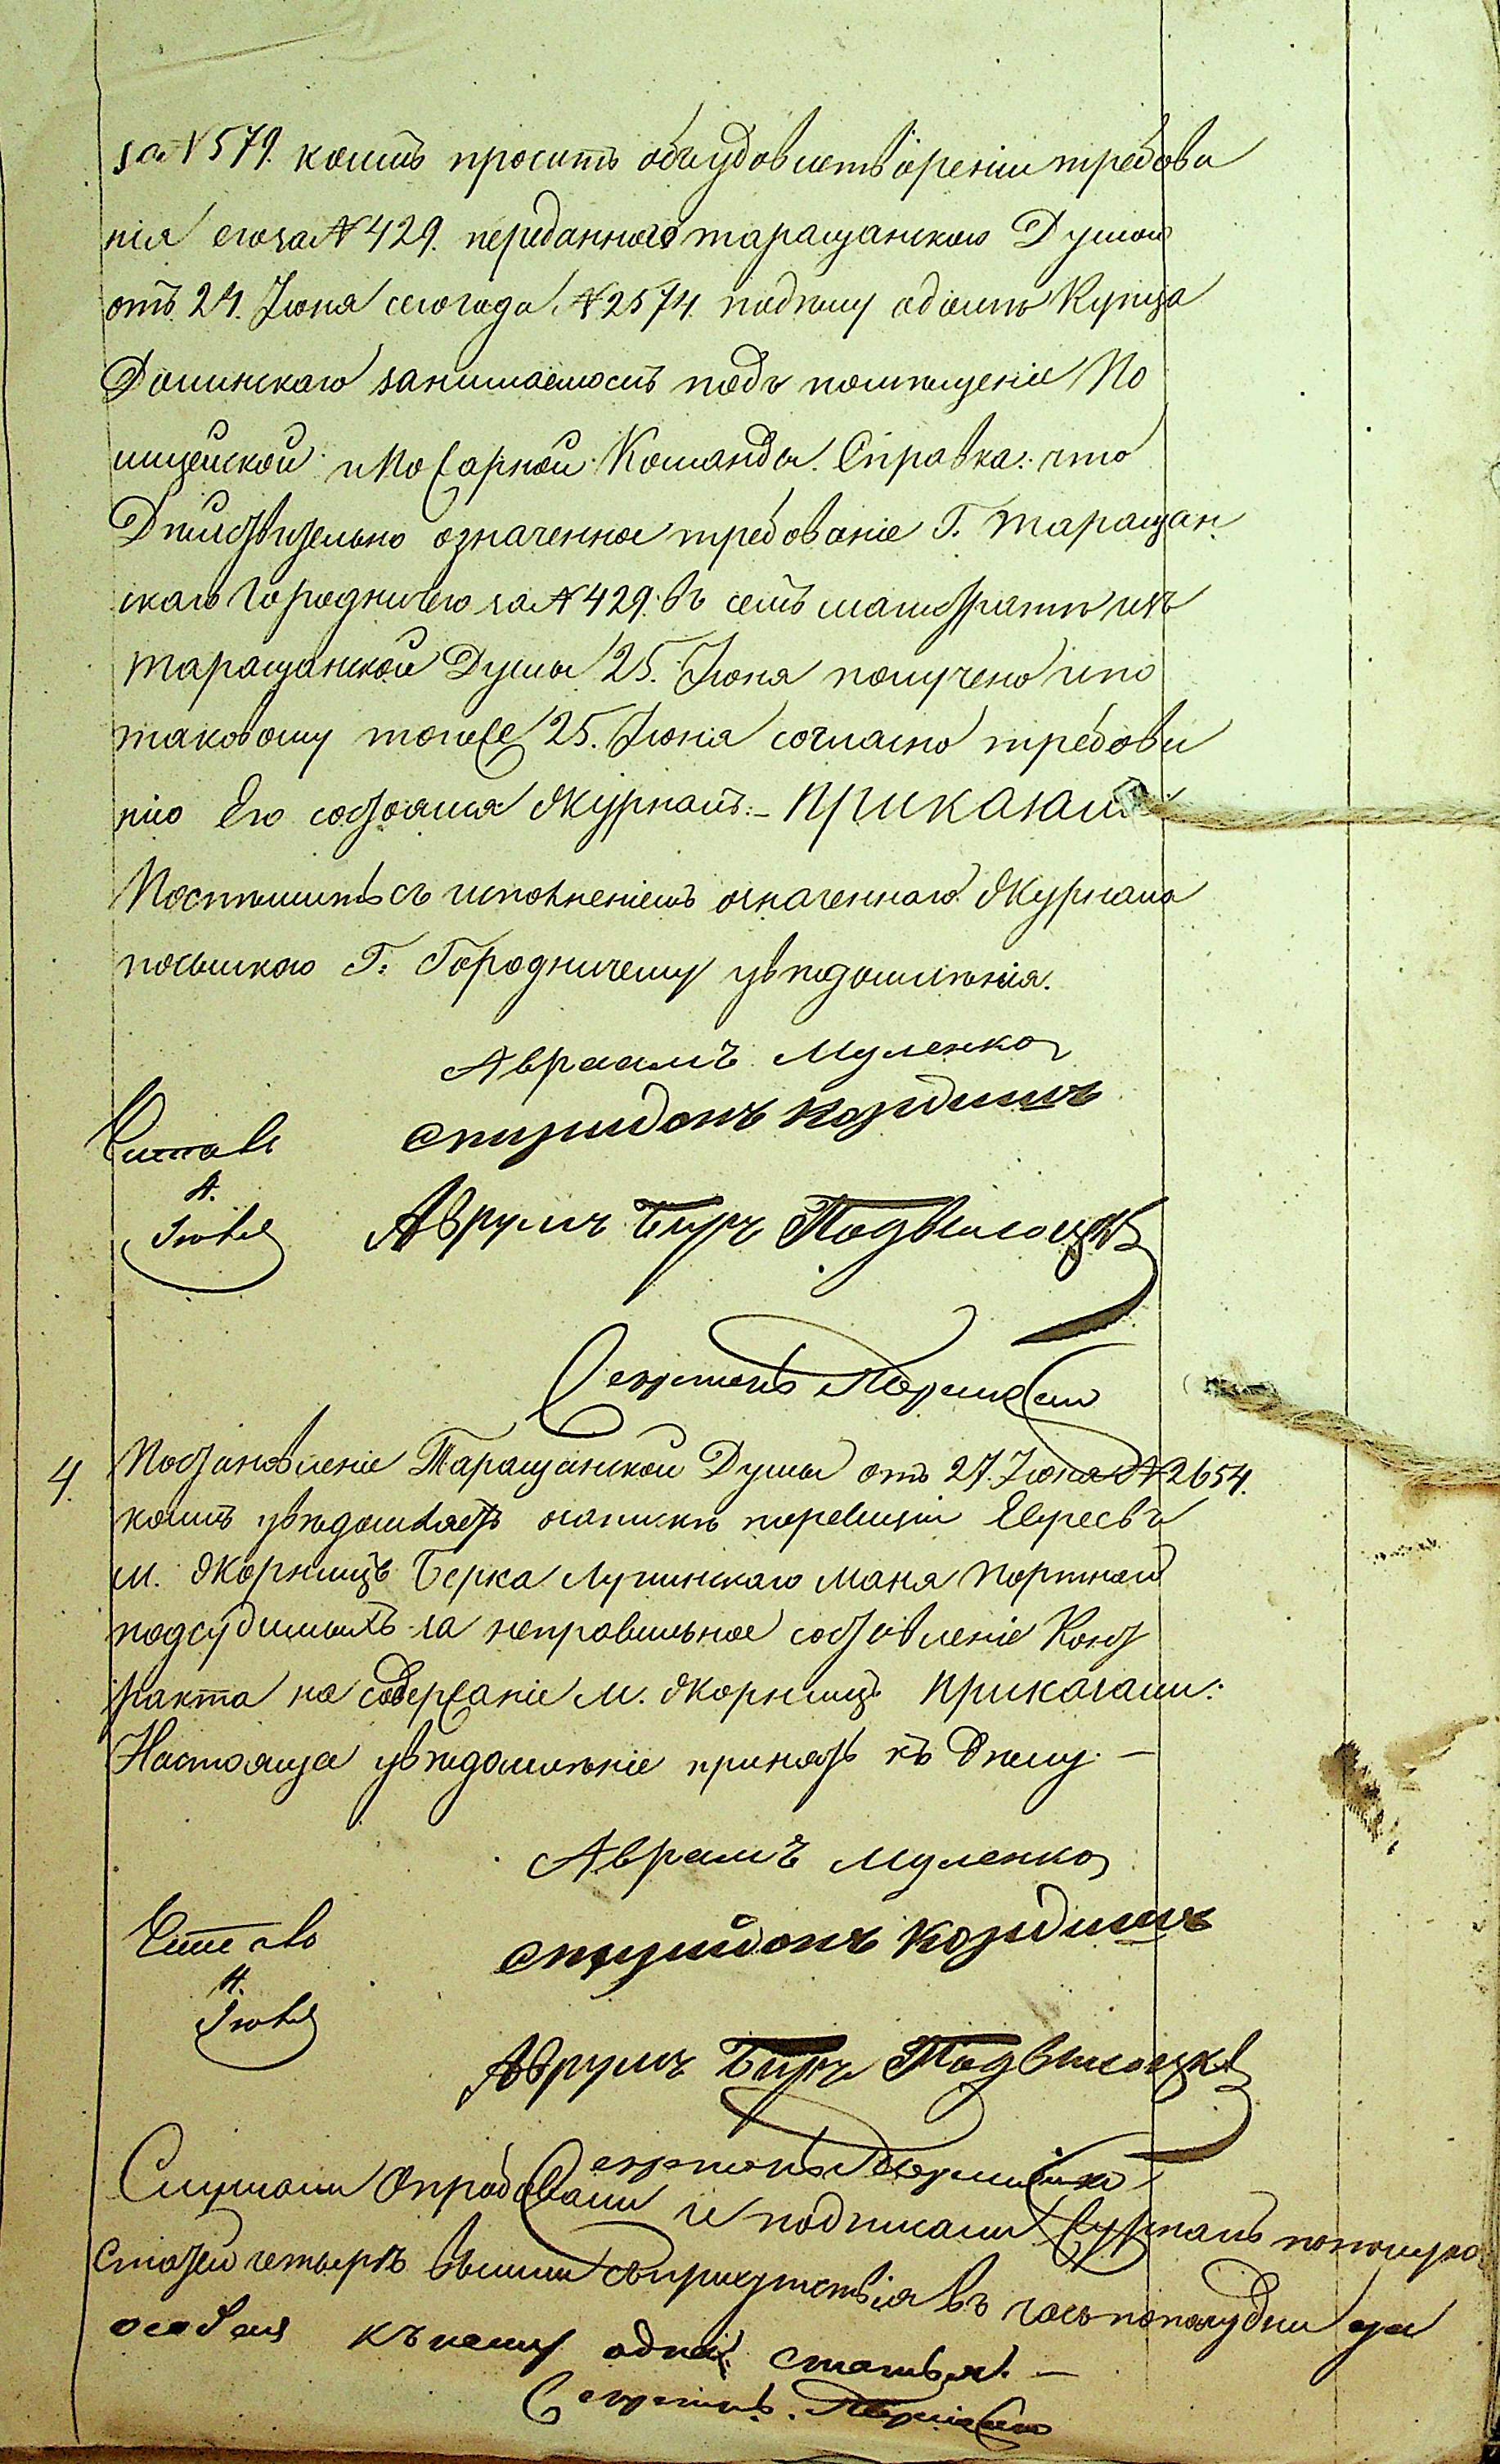 за N 579. коимъ проситъ объ удовлетвореніи требова
нія его за N 429. переданного таращанскою Думою
отъ 24. Іюня сего года N 2574. по дѣлу о домѣ Купца
Долинскаго занимаемомъ подъ помѣщеніе По
лицейской и Пожарной Команды. Справка: что
Дѣйствительно означенное требованіе Г. Таращан
скаго Городничего за N 429. въ семъ магистратѣ изъ
таращанской Думы 25. Іюня получено и по
таковому того же 25. Іюня согласно требова
нію Его состоялся Журналъ:- Приказали
Поспѣшить съ исполненіемъ означеннаго Журнала
посылкою Г. Городничему увѣдомленія.
Авраамъ Муленко
Спиридонъ
Читалъ
4.
Іюля
Аврумъ Беръ Подвысоцкій
Секретарь
4. Постановленіе Таращанской Думы от 27. Іюня N 2654.
коимъ увѣдомляетъ о запискѣ по ревизіи Евреевъ
м. Жорнищъ Берка Лучинскаго Маня Портнаго
подсудимыхъ за неправильное составленіе Конт
ракта на содержаніе м. Жорнищъ Приказали:
Настояща увѣдомленіе принять къ Дѣлу. —
Аврамъ Муленко
Читалъ
4.
Іюля
Спиридонъ
Аврумъ Беръ Подвысоцкій
Секретарь
Слушали Опробовали и подписали Журналъ
Статей четыре вышли съ присутствія въ часъ по полудни
особая къ нему одна статья. —
Секретарь